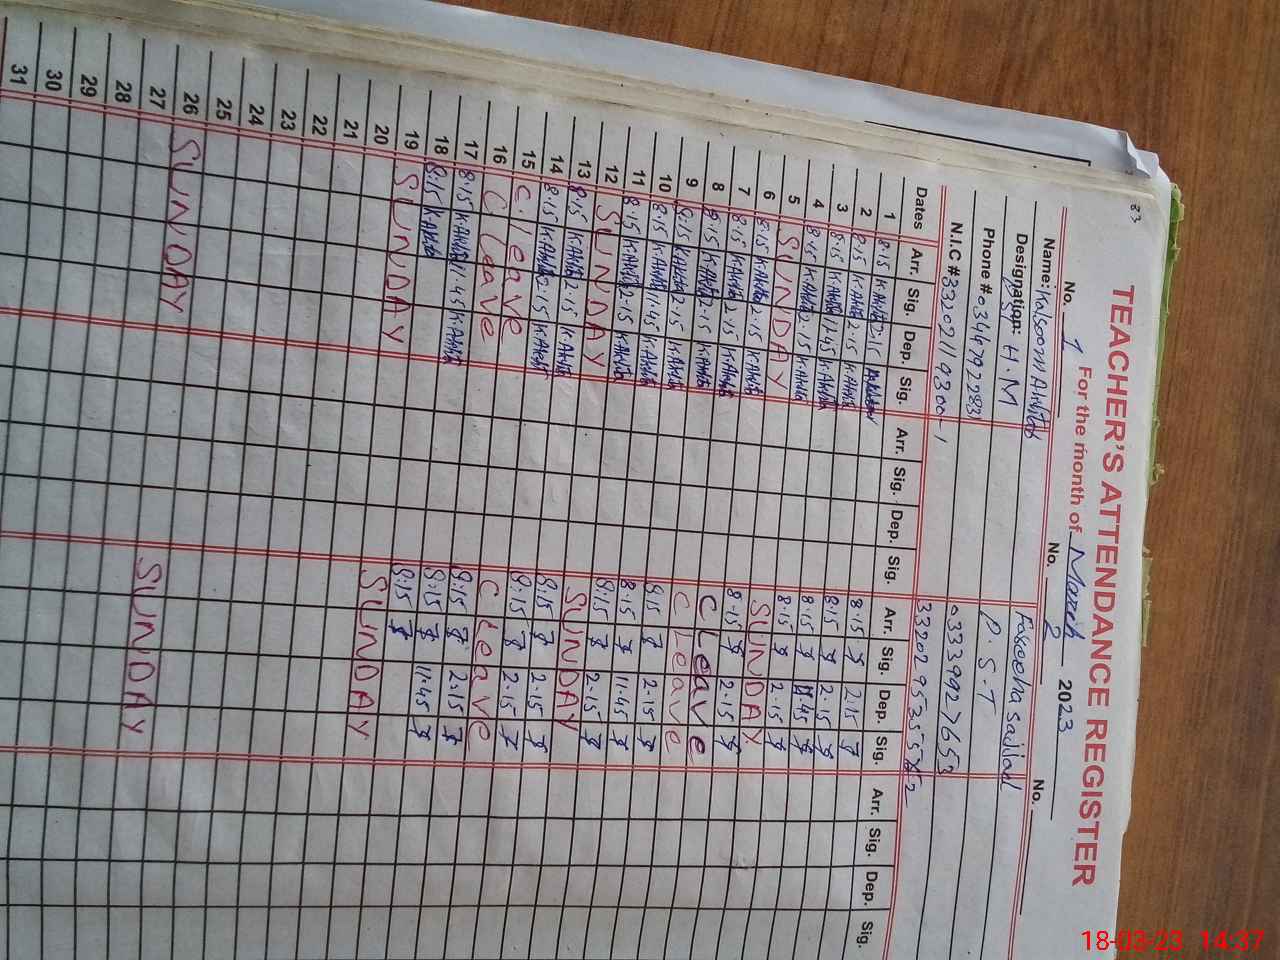 83
TEACHER'S ATTENDANCE REGISTER
For the month of March 2023
No. 1 No. 2 No.
Name: Kalsoom Akhtar Faseeha Sajjad
Designation: H.M P.S.T
Phone # 03447922283 03339927653
N.I.C #
Dates Arr. Sig. Dep. Sig. Arr. Sig. Dep. Sig. Arr. Sig. Dep. Sig. Arr. Sig. Dep. Sig.
1 8.15 K.Akhtar 2.15 8.15 2.15
2 8.15 K.Akhtar 2.15 K.Akhtar 8.15 2.15
3 8.15 K.Akhtar 11.45 K.Akhtar 8.15 11.45
4 8.15 K.Akhtar 2.15 K.Akhtar 8.15 2.15
5 SUNDAY SUNDAY
6 8.15 K.Akhtar 2.15 K.Akhtar 8.15 2.15
7 8.15 K.Akhtar 2.15 K.Akhtar C Leave
8 8.15 K.Akhtar 2.15 K.Akhtar C Leave
9 8.15 K.Akhtar 2.15 K.Akhtar 8.15 2.15
10 8.15 K.Akhtar 11.45 K.Akhtar 8.15 11.45
11 8.15 K.Akhtar 2.15 K.Akhtar 8.15 2.15
12 SUNDAY SUNDAY
13 8.15 K.Akhtar 2.15 K.Akhtar 8.15 2.15
14 8.15 K.Akhtar 2.15 K.Akhtar 8.15 2.15
15 C. leave C leave
16 C leave 8.15 2.15
17 8.15 K.Akhtar 11.45 K.Akhtar 8.15 11.45
18 8.15 K.Akhtar 8.15
19 SUNDAY SUNDAY
20
21
22
23
24
25
26 SUNDAY SUNDAY
27
28
29
30
31
18-03-23 14:37